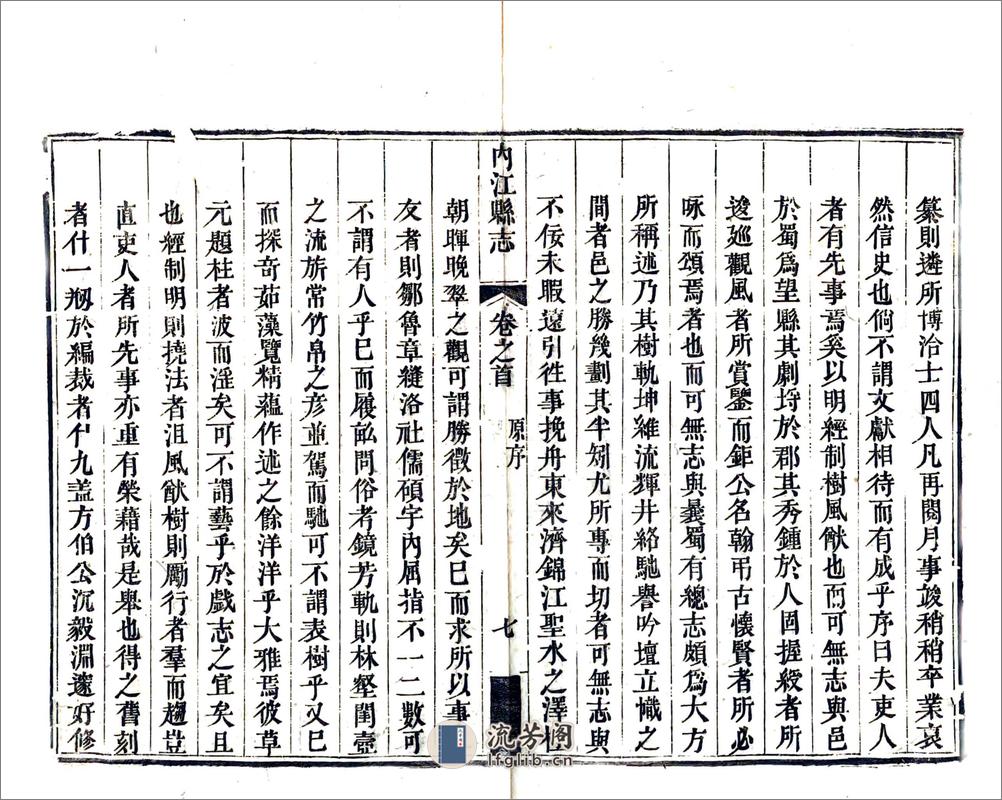 纂則遴所博洽士四人凡再閱月事竣稍稍卒業哀
然信史也倘不謂文獻相待而有成乎序曰夫吏人
者有先事焉奚以明經制樹風猷也而可無志與邑
於蜀爲望縣其劇埒於郡其秀鍾於人固握綬者所
逡廵觀風者所賞鑒而鉅公名翰弔古懷賢者所必
咏而頌焉者也而可無志與曩蜀有總志頗爲大方
所稱述乃其樹軌坤維流輝井絡馳譽吟壇立幟之
間者邑之勝幾劃其半矧尤所專而切者可無志與
不佞未暇遠引徃事挽舟東來濟錦江聖水之澤
內江縣志
卷之首
原序
七
朝暉晚翠之觀可謂勝徵於地矣巳而求所以事
友者則鄒魯章縫洛社儒碩宇內屈指不一二數可
不謂有人乎巳而履畝問俗考鏡芳軌則林壑閨壼
之流旂常竹帛之彥並駕而馳可不謂表樹乎又巳
而探奇茹藻覽精蘊作述之餘洋洋乎大雅焉彼草
元題柱者波而淫矣可不謂藝乎於戲志之宜矣且
也經制明則撓法者沮風猷樹則勵行者羣而趨豈
直吏人者所先事亦重有榮藉哉是舉也得之舊刻
者什一剏於編裁者什九盖方伯公沉毅淵邃好修
流芳阁
lfglib.cn